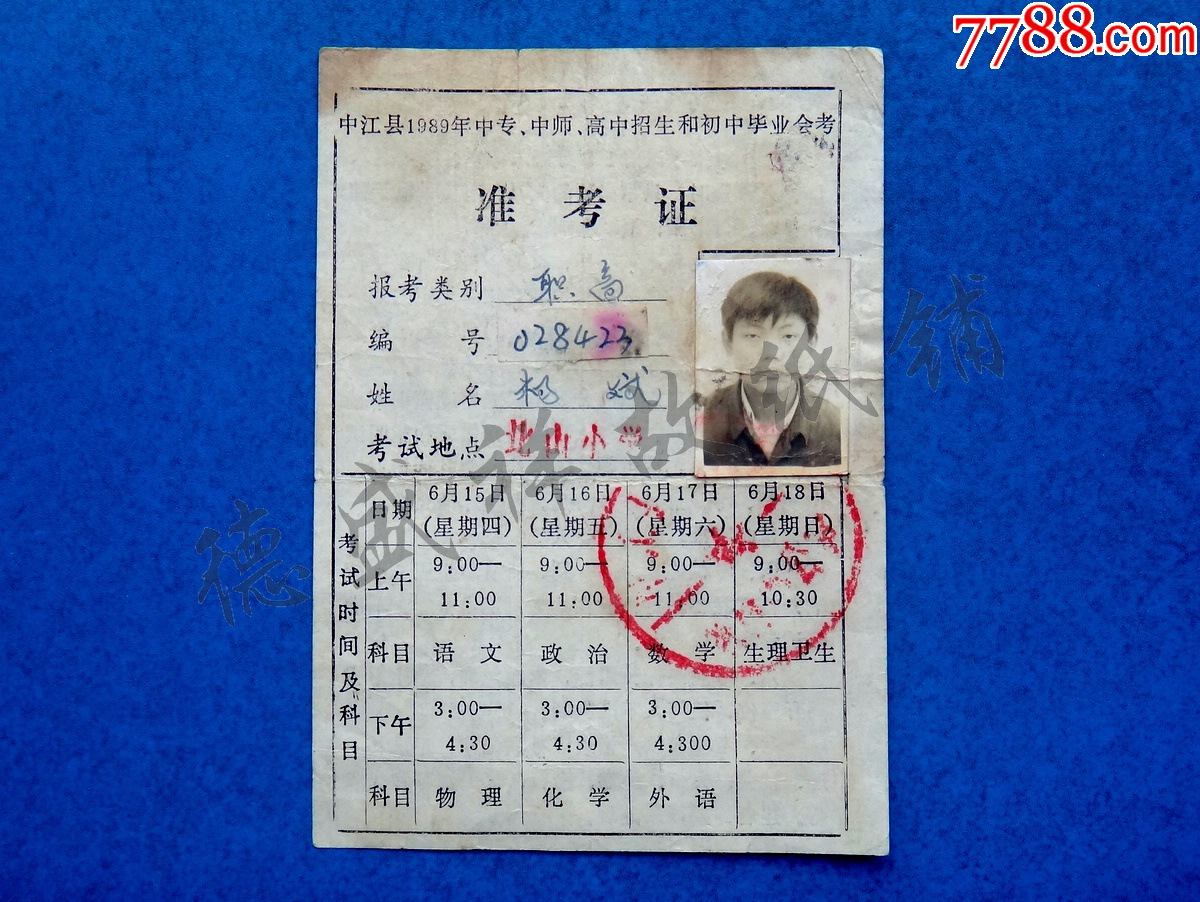 7788.com
中江县1989年中专、中师、高中招生和初中毕业会考
准考证
报考类别 职高
编号 028423
姓名 杨斌
考试地点 北山小学
考试时间及科目
日期 6月15日(星期四) 6月16日(星期五) 6月17日(星期六) 6月18日(星期日)
上午 9:00—11:00 9:00—11:00 9:00—11:00 9:00—10:30
科目 语文 政治 数学 生理卫生
下午 3:00—4:30 3:00—4:30 3:00—4:300
科目 物理 化学 外语
德盛祥故纸铺